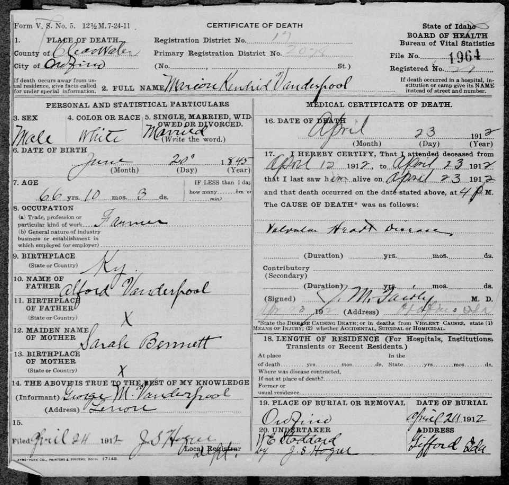 Form V. S. No. 5. 12½ M. 7-24-11
CERTIFICATE OF DEATH
State of Idaho
BOARD OF HEALTH
Bureau of Vital Statistics
1. PLACE OF DEATH
County of Clearwater
City of Orofino
Registration District No. 17
Primary Registration District No.
(No. St.)
File No. 1964
Registered No.
If death occurs away from usual residence, give facts called for under special information.
2. FULL NAME Marion Kendrid Vanderpool
If death occurred in a hospital, institution or camp give its NAME instead of street and number.
PERSONAL AND STATISTICAL PARTICULARS
3. SEX
Male
4. COLOR OR RACE
White
5. SINGLE, MARRIED, WIDOWED OR DIVORCED.
Married
(Write the word.)
6. DATE OF BIRTH
June 20 1845
(Month) (Day) (Year)
7. AGE
66 yrs. 10 mos. 3 ds.
IF LESS than 1 day
how many hrs. or min.
8. OCCUPATION
(a) Trade, profession or particular kind of work Farmer
(b) General nature of industry business or establishment in which employed (or employer)
9. BIRTHPLACE
(State or Country) Ky.
10. NAME OF FATHER Alford Vanderpool
11. BIRTHPLACE OF FATHER
(State or Country) X
12. MAIDEN NAME OF MOTHER Sarah Bennett
13. BIRTHPLACE OF MOTHER
(State or Country) X
14. THE ABOVE IS TRUE TO THE BEST OF MY KNOWLEDGE
(Informant) George M. Vanderpool
(Address) Lenore
15.
Filed April 24 1912 J.S. Hogue
Local Registrar
MEDICAL CERTIFICATE OF DEATH.
16. DATE OF DEATH
April 23 1912
(Month) (Day) (Year)
17. I HEREBY CERTIFY, That I attended deceased from
April 12 1912, to April 23 1912
that I last saw him alive on April 23 1912
and that death occurred on the date stated above, at 4 P M.
The CAUSE OF DEATH* was as follows:
Valvular Heart Disease
(Duration) yrs. mos. ds.
Contributory
(Secondary)
(Duration) yrs. mos. ds.
(Signed) M. D.
191 (Address)
*State the DISEASE CAUSING DEATH; or in deaths from VIOLENT CAUSES, state (1) MEANS OF INJURY; (2) whether ACCIDENTAL, SUICIDAL OR HOMICIDAL.
18. LENGTH OF RESIDENCE (For Hospitals, Institutions, Transients or Recent Residents.)
At place of death yrs. mos. ds. In the State yrs. mos. ds.
Where was disease contracted,
if not at place of death?
Former or
usual residence
19. PLACE OF BURIAL OR REMOVAL
Orofino
DATE OF BURIAL
April 24 1912
20. UNDERTAKER
by J.S. Hogue
ADDRESS
Gifford Ida